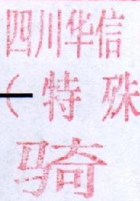 四川华信
（特 殊
骑